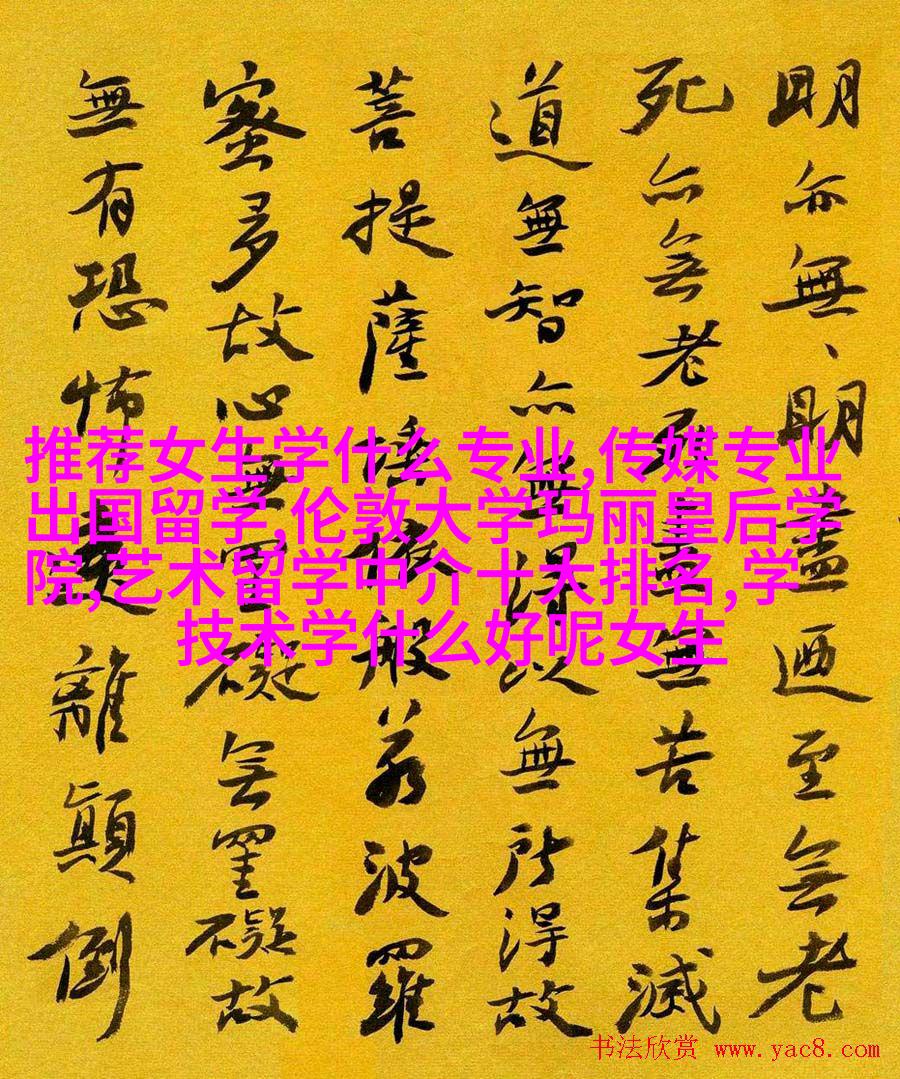 明亦無、明盡迺至無老
死亦無老死盡無苦集滅
道無智亦無得以無所得故
菩提薩埵依般若波羅
蜜多故心無罣礙無罣礙故
無有恐怖遠離顛倒
推荐女生学什么专业,传媒专业
出国留学,伦敦大学玛丽皇后学
院,艺术留学中介十大排名,学
技术学什么好呢女生
书法欣赏 www.yac8.com